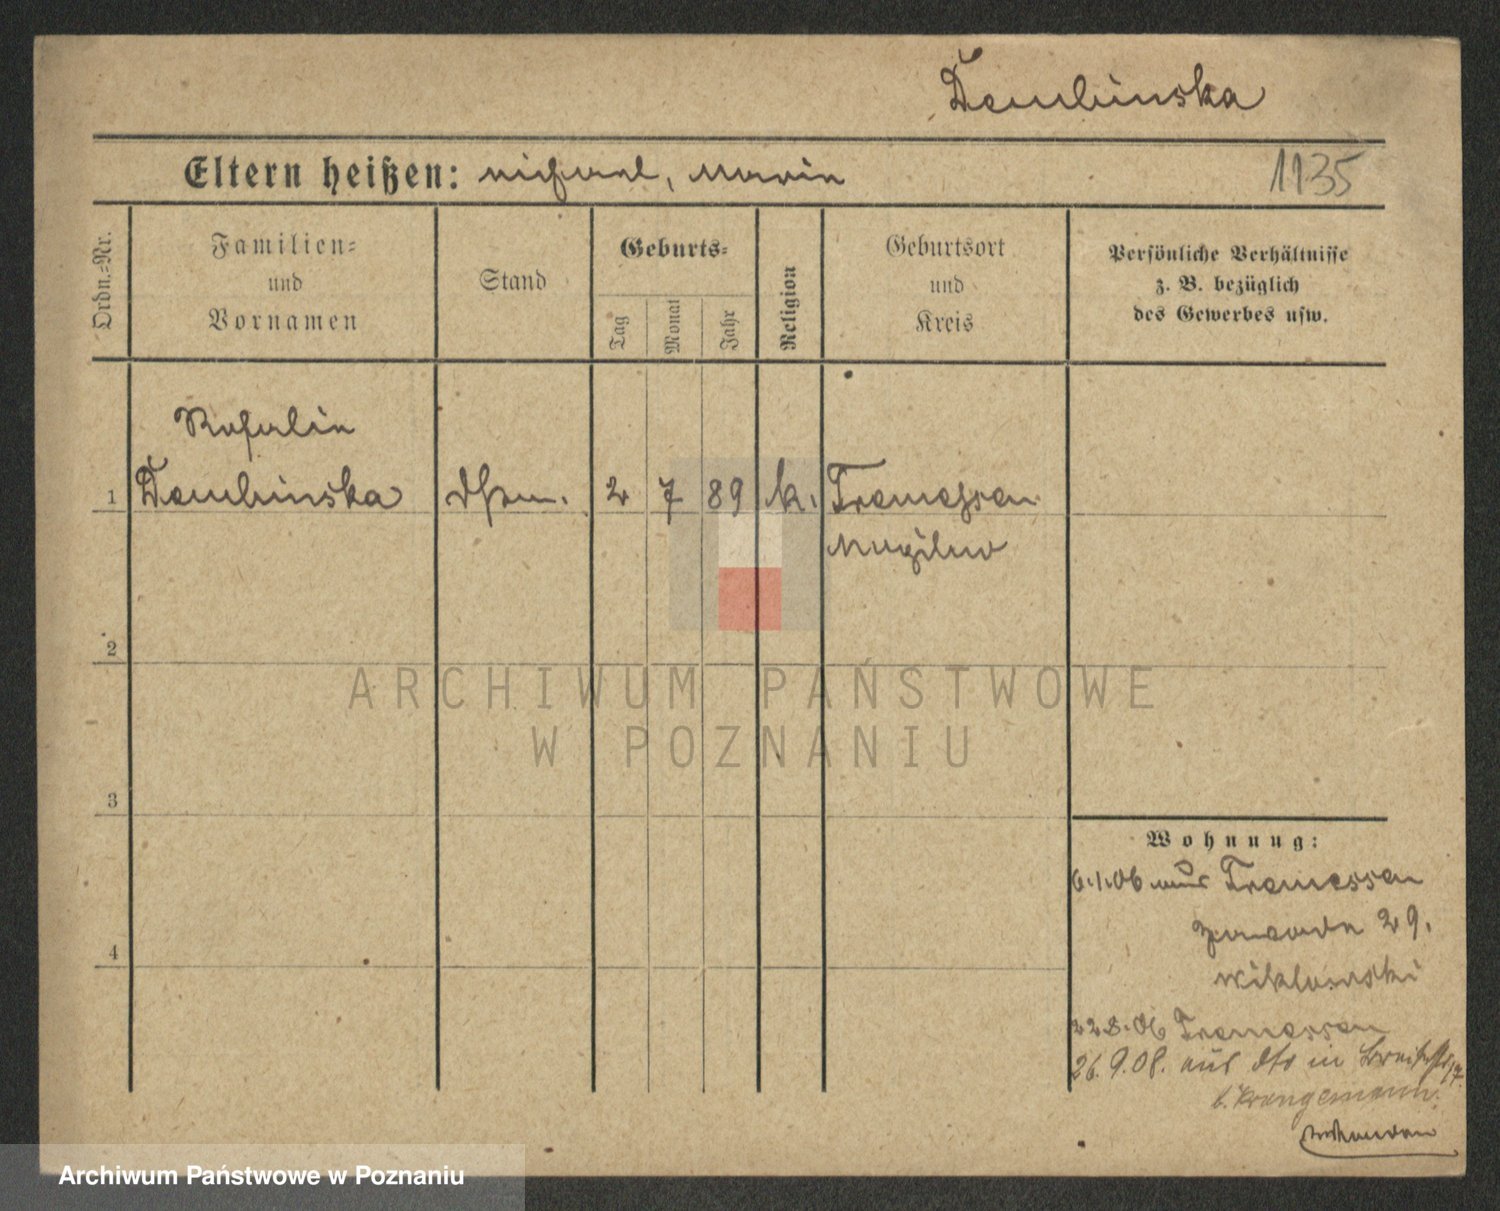 Dembinska
Eltern heißen: Michael, Maria
1135
Ordn.=Nr.
Familien=
und
Vornamen
Stand
Geburts=
Tag
Monat
Jahr
Religion
Geburtsort
und
Kreis
Persönliche Verhältnisse
z. B. bezüglich
des Gewerbes usw.
Rosalie
1 Dembinska 2 7 89 k. Tremessen
Mogilno
2
3
4
ARCHIWUM PAŃSTWOWE
W POZNANIU
Wohnung:
6.1.06 aus Tremessen
29.
22.8.06 Tremessen
26.9.08. aus dto in 17.
b. Krangemann.
Archiwum Państwowe w Poznaniu